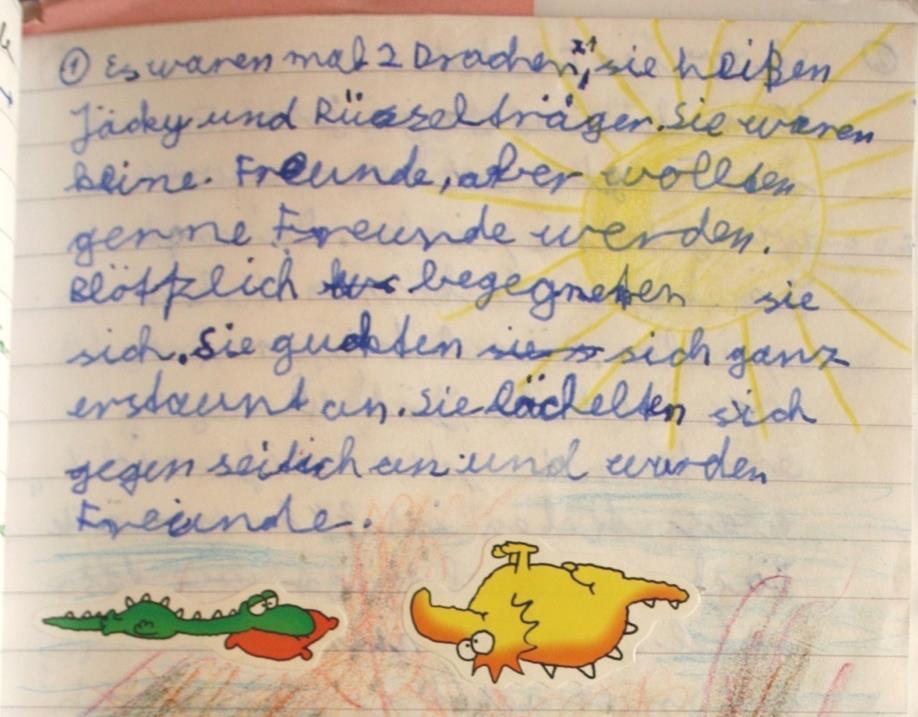 ① Es waren mal 2 Drachen, sie heißen
Jäcky und Rüsselträger. Sie waren
keine. Freunde, aber wollten
gerne Freunde werden.
Blötzlich begegneten sie
sich. Sie guckten sich ganz
erstaunt an. Sie lächelten sich
gegen seitich an und wurden
Freunde.